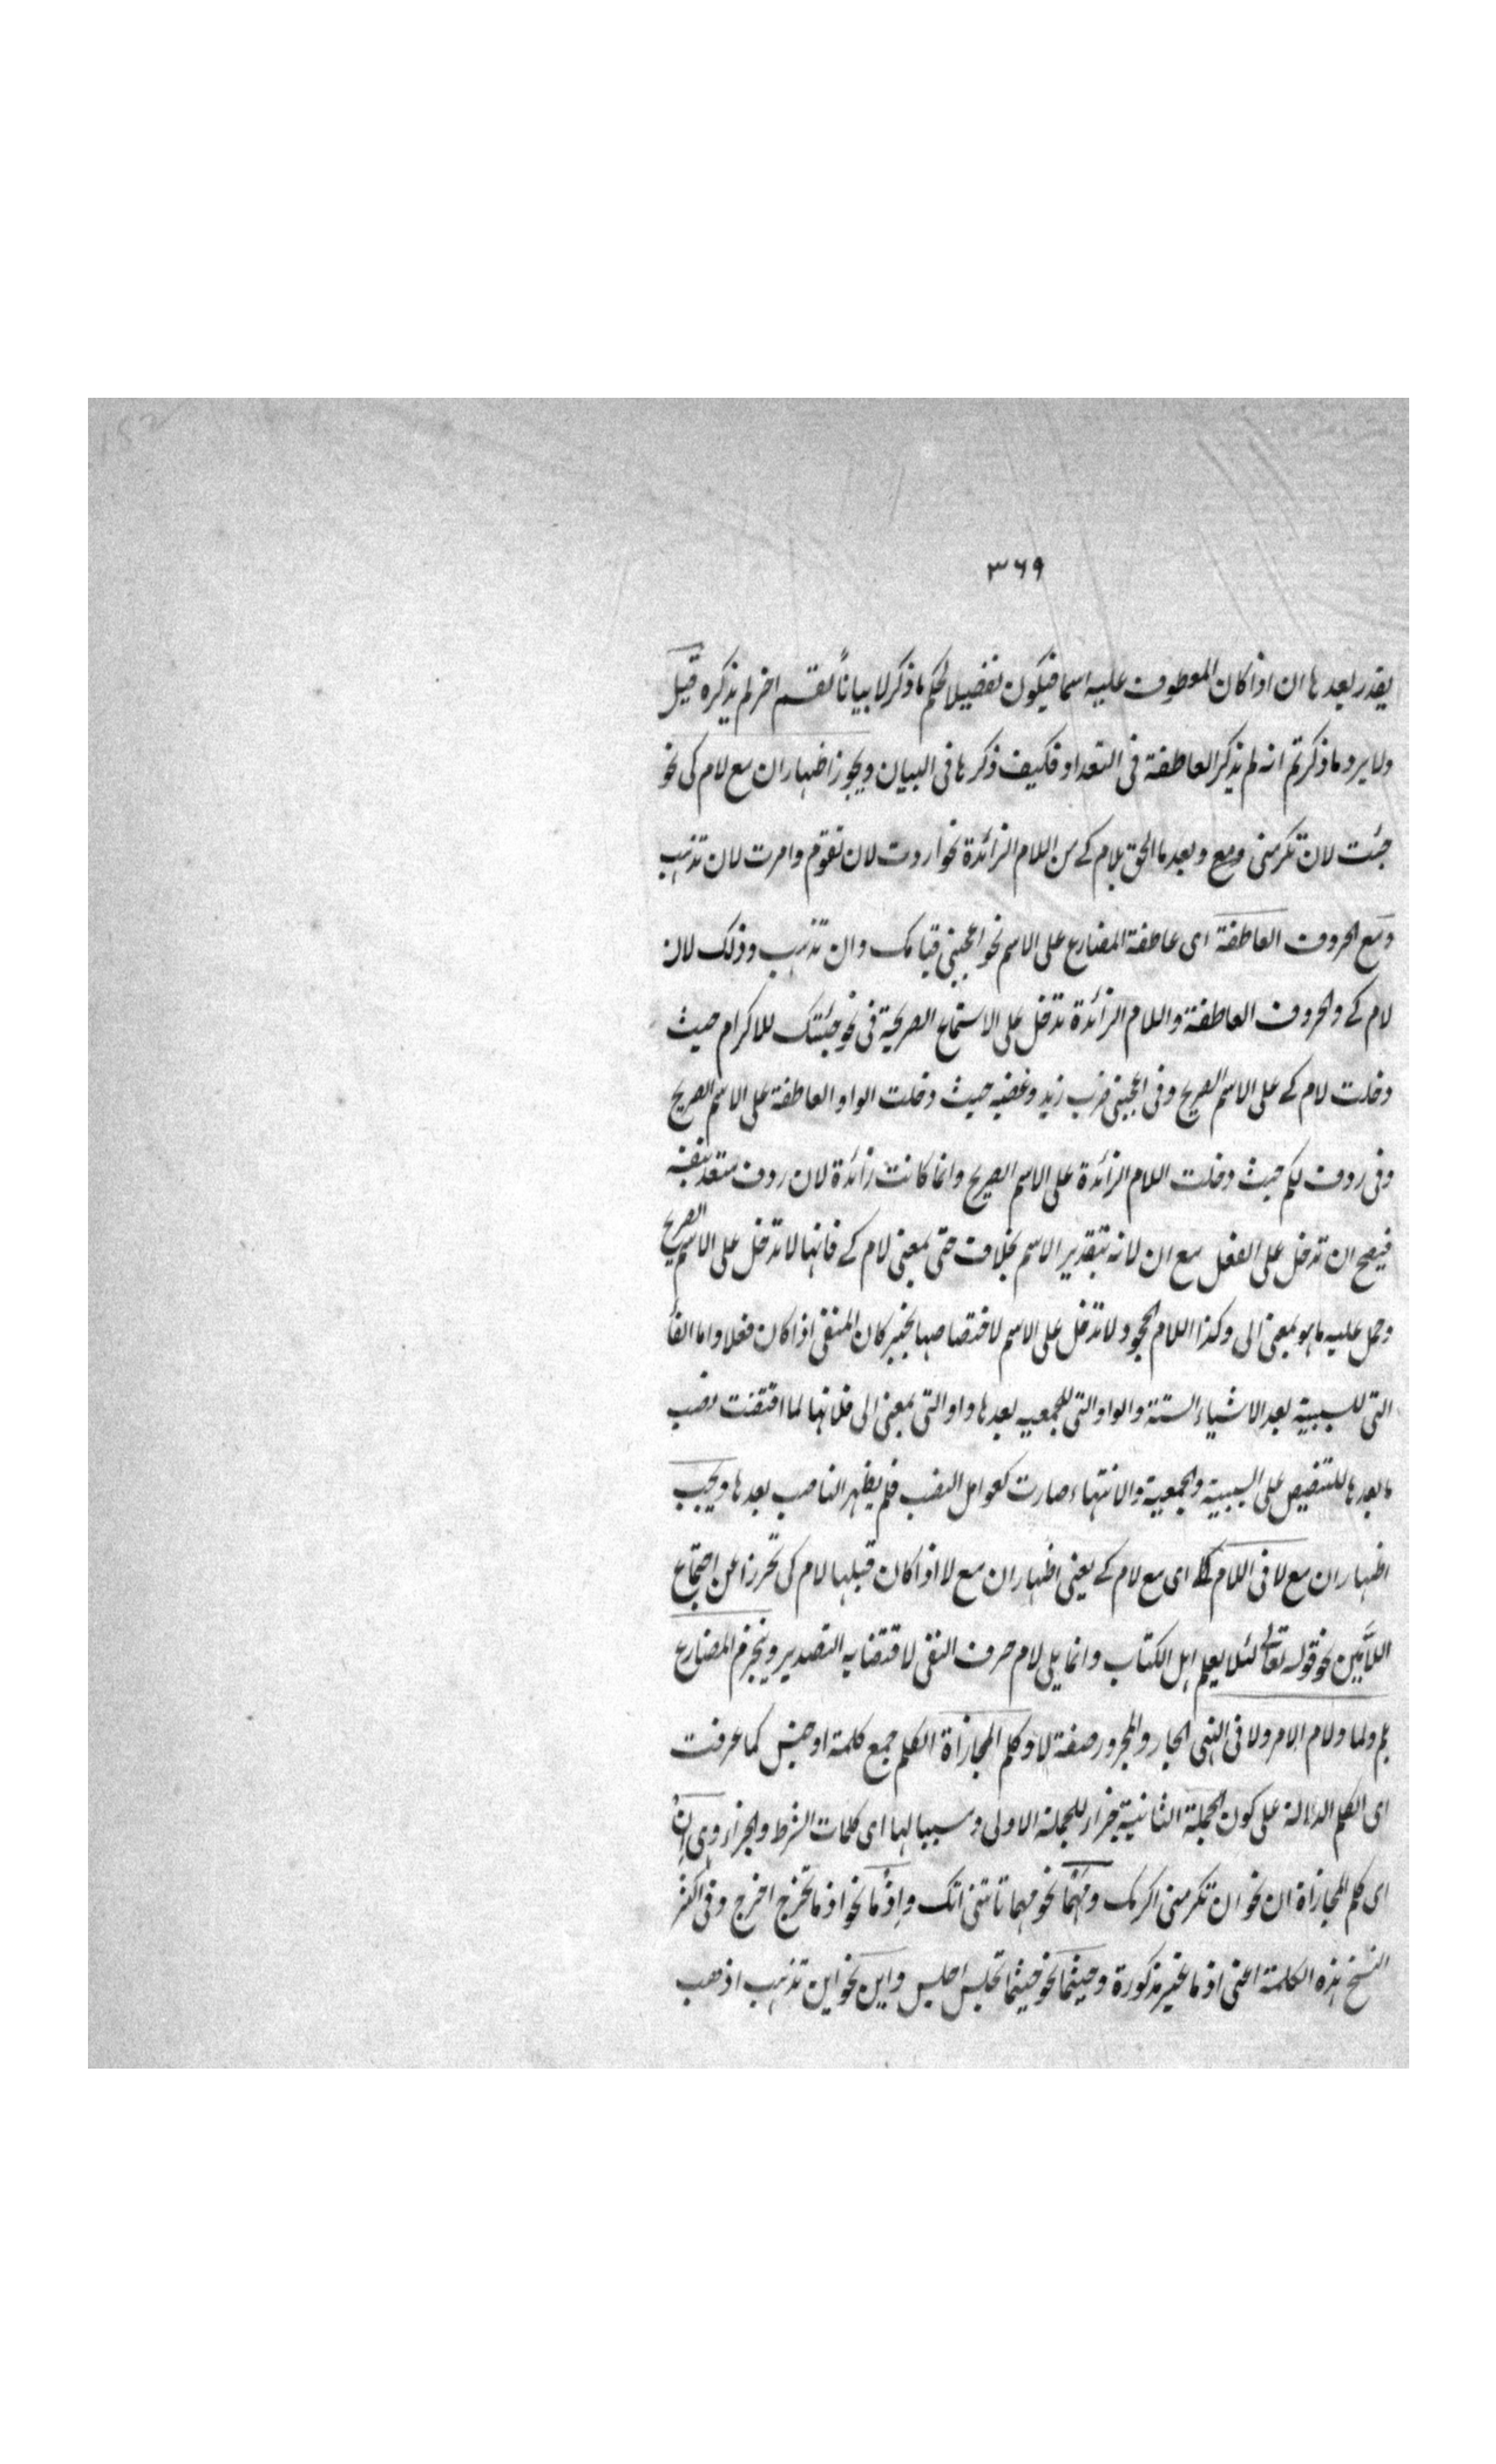 ٣٦٩
يقدر بعدها ان اذا كان المعطوف عليه اسما فيكون تفضيلا لحكم ما ذكر لا بيانًا لقسم اخر لم يذكره قيل
ولا يرد ما ذكرتم انه لم يذكر العاطفة فى التعداد فكيف ذكرها فى البيان ويجوز اضهار ان مع لام كى نحو
جئت لان تكرمنى ومع وبعد ما الحق بلام كے من اللام الزائدة نحو اردت لان تقوم وامرت لان تذهب
ومع الحروف العاطفة اى عاطفة المضارع على الاسم نحو اعجبنى قيامك وان تذهب وذلك لان
لام كے والحروف العاطفة واللام الزائدة تدخل على الاسماء الصريحة فى نحو جئتك للاكرام حيث
دخلت لام كے على الاسم الصريح وفى اعجبنى ضرب زيد وغضبه حيث دخلت الواو العاطفة على الاسم الصريح
وفى ردف لكم حيث دخلت اللام الزائدة على الاسم الصريح وانما كانت زائدة لان ردف متعد بنفسه
فيصح ان تدخل على الفعل مع ان لانه بتقدير الاسم بخلاف حتى بمعنى لام كے فانها لا تدخل على الاسم الصريح
وحمل عليه ما هو بمعنى الى وكذا اللام الجحود لا تدخل على الاسم لاختصاصها بخبر كان المنفى اذا كان فعلا واما الفاء
التى للسببية بعد الاشياء الستة والواو التى للجمعيه بعدها واو التى بمعنى الى فلانها لما اقتضت نصب
ما بعدها للتنصيص على السببية والجمعية والانتهاء صارت كعوامل النصب فلم يظهر الناصب بعدها ويجب
اظهار ان مع لا فى اللام كے اى مع لام كے يعنى اظهار ان مع لا اذا كان قبلها لام كى تحرزا عن اجتماع
اللامين نحو قوله تعالى لئلا يعلم اهل الكتاب وانما يلى لام حرف النفى لاقتضايه التصدير وينجزم المضارع
بلم ولما ولام الامر ولا فى النهى الجار والمجرور صفة لا وكلم المجازاة الكلم جمع كلمة او جنس كما عرفت
اى الكلم الدالة على كون الجملة الثانية جزاء للجملة الاولى وسببا لها اى كلمات الشرط والجزاء وهى اِنْ
اى كلم المجازاة ان نحو ان تكرمنى اكرمك ومهما نحو مهما تاتنى اتك واِذْما نحو اذما تخرج اخرج وفى اكثر
النسخ هذه الكلمة اعنى اذما غير مذكورة وحيثما نحو حيثما تجلس اجلس واين نحو اين تذهب اذهب